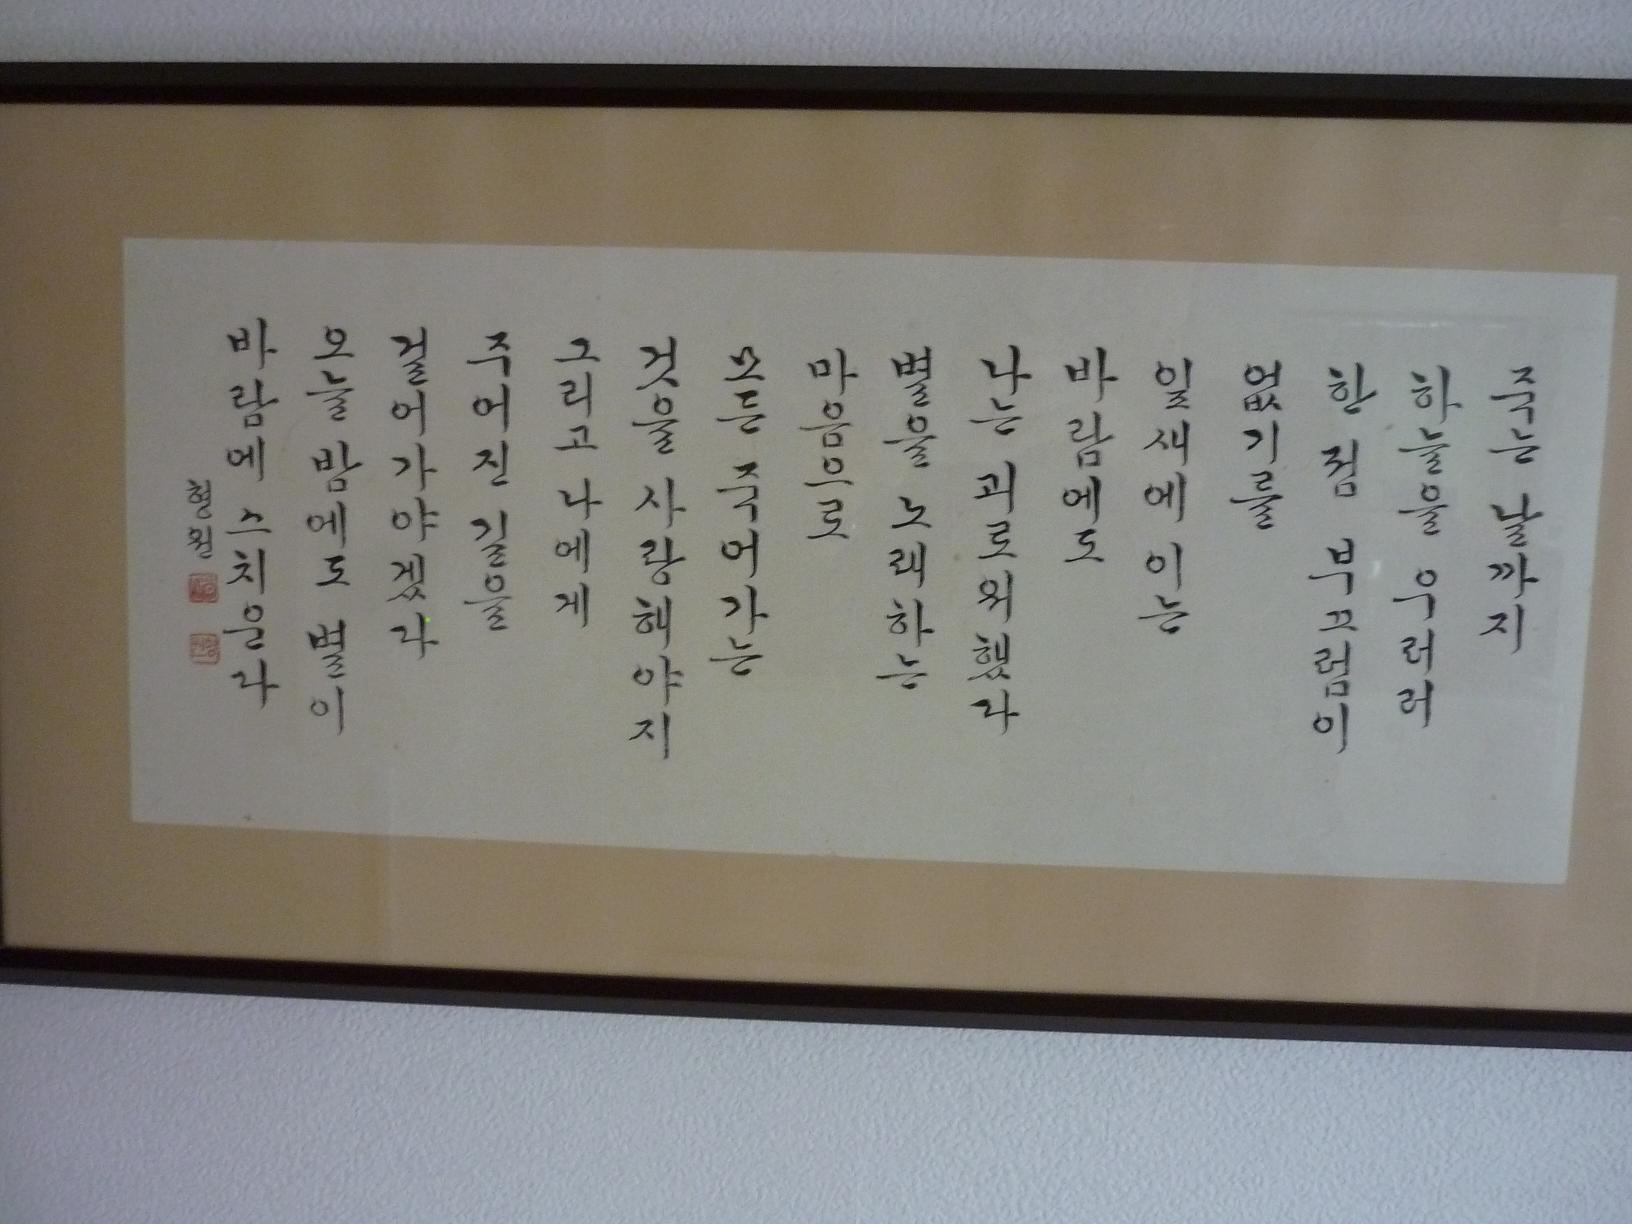 죽는 날까지
하늘을 우러러
한 점 부끄럼이
없기를
잎새에 이는
바람에도
나는 괴로워했다
별을 노래하는
마음으로
모든 죽어가는
것을 사랑해야지
그리고 나에게
주어진 길을
걸어가야겠다
오늘 밤에도 별이
바람에 스치운다